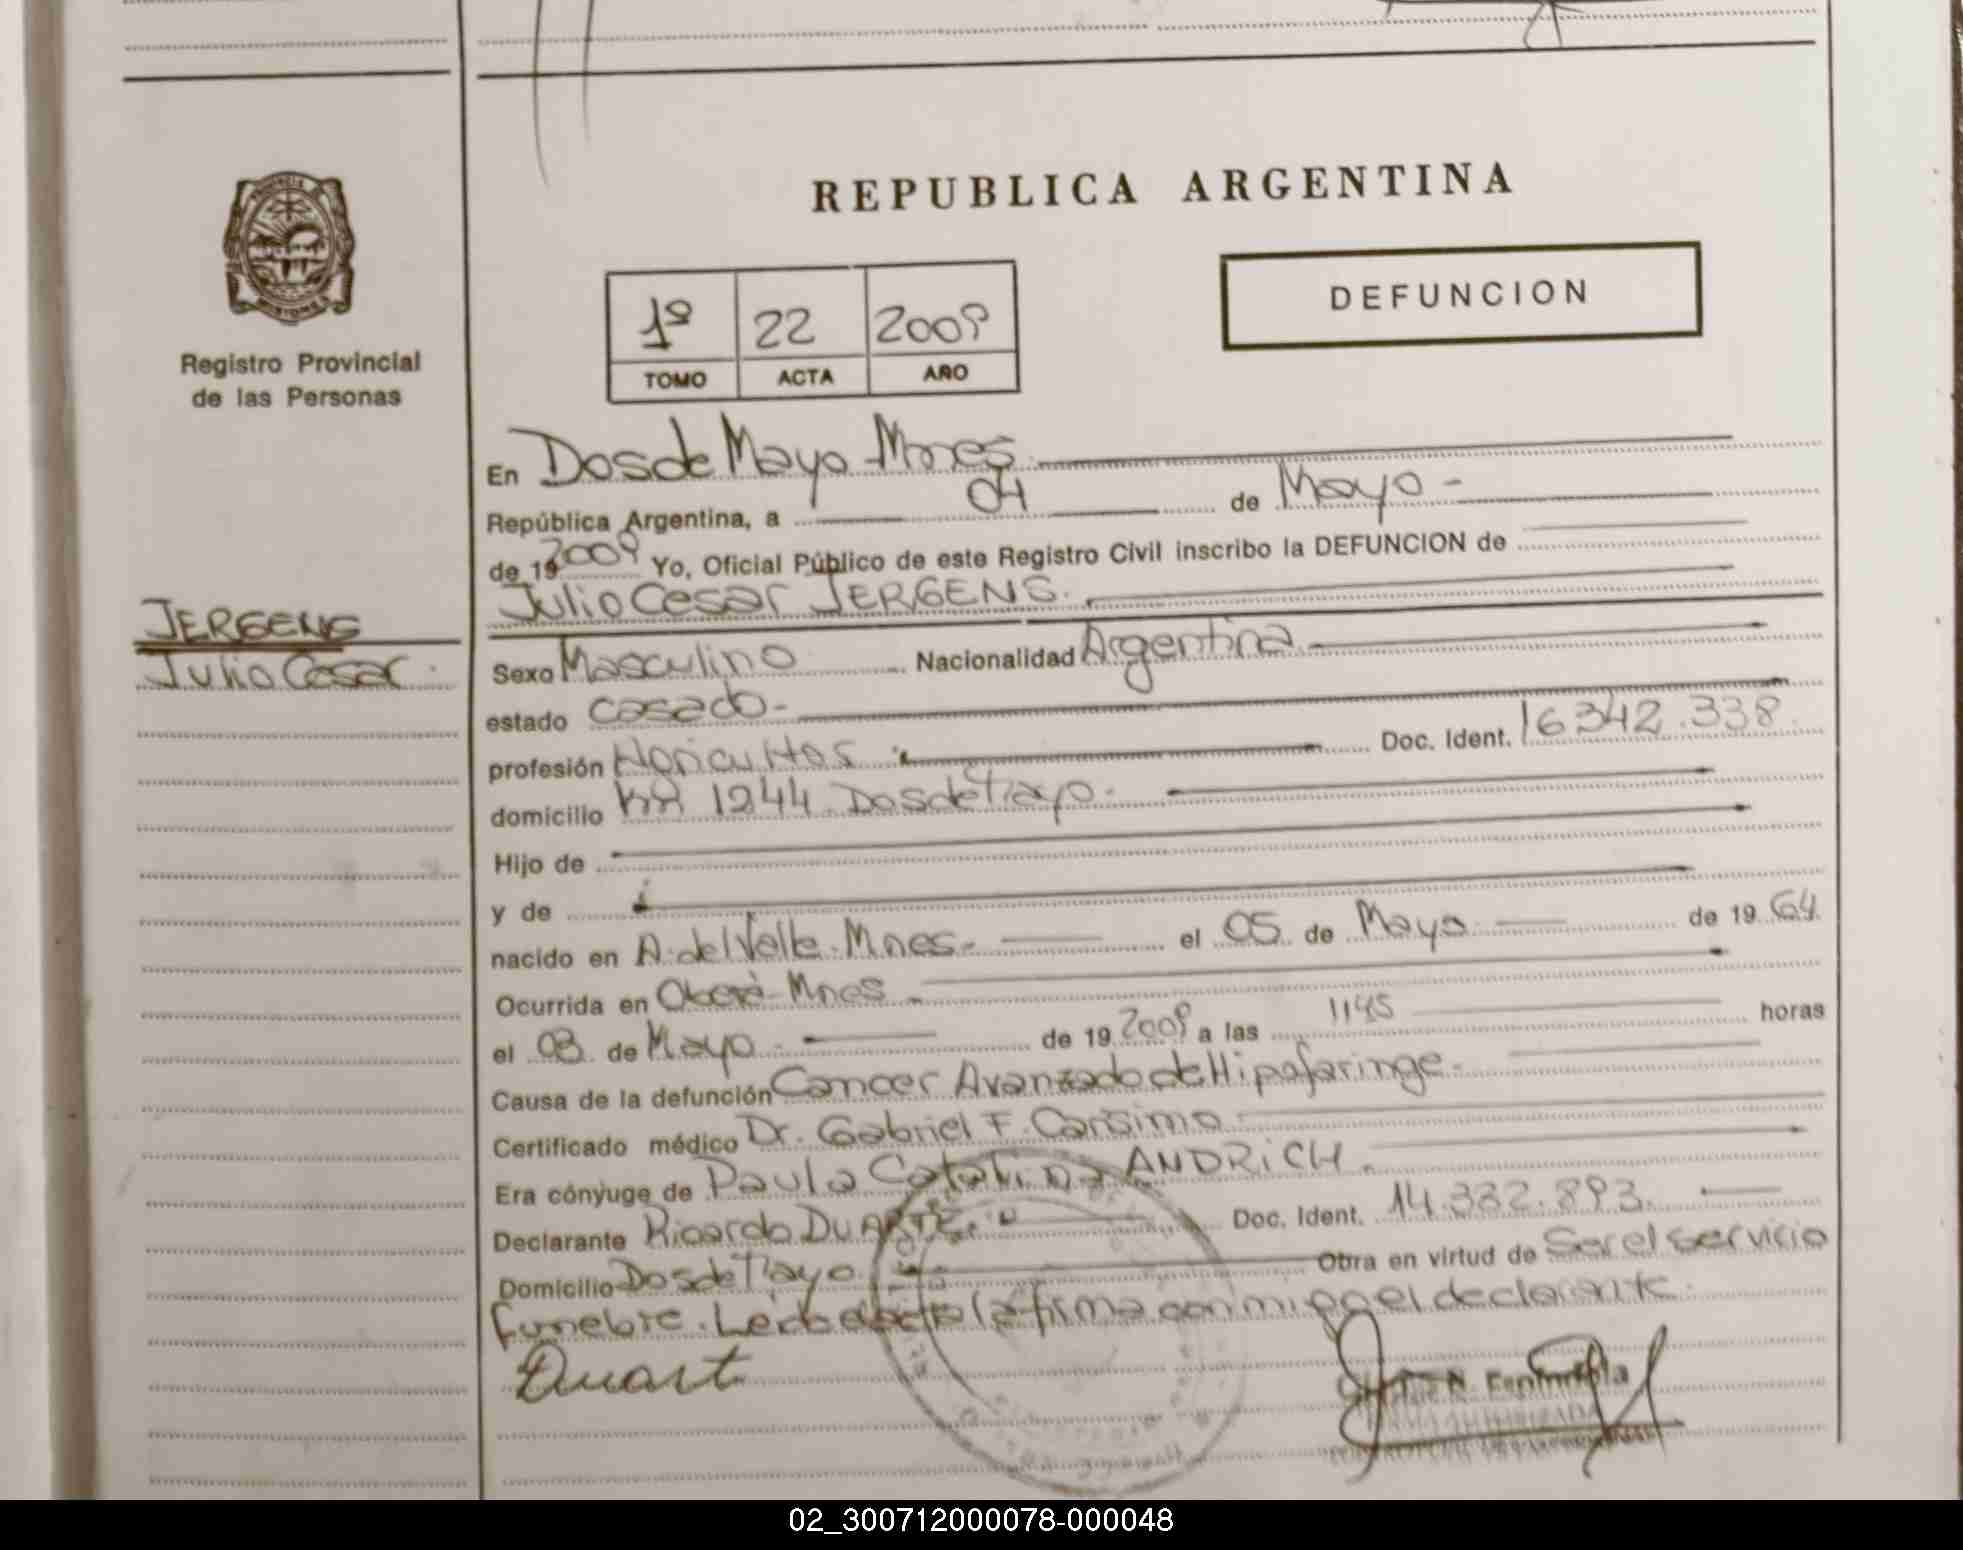 REPUBLICA ARGENTINA
DEFUNCION
1º 22 2009
TOMO ACTA AÑO
Registro Provincial
de las Personas
En Dos de Mayo Mnes
República Argentina, a 04 de Mayo -
de 19 2009 Yo, Oficial Público de este Registro Civil inscribo la DEFUNCION de
Julio Cesar JERGENS.
JERGENS
Julio Cesar.
Sexo Masculino Nacionalidad Argentina
estado casado -
profesión Agricultor Doc. Ident. 16342.338
domicilio Km 1244 Dos de Mayo.
Hijo de
y de
nacido en A. del Valle. Mnes. el 05 de Mayo de 19 64
Ocurrida en Oberá Mnes
el 03 de Mayo de 19 2009 a las 1145 horas
Causa de la defunción Cancer Avanzado de Hipofaringe.
Certificado médico Dr. Gabriel F. Carísimo
Era cónyuge de Paula Catalina ANDRICH.
Declarante Ricardo DUARTE. Doc. Ident. 14.332.893.
Domicilio Dos de Mayo Obra en virtud de Ser el servicio
funebre. Leída el acta la firma con migo el declarante.
Duart
02_300712000078-000048